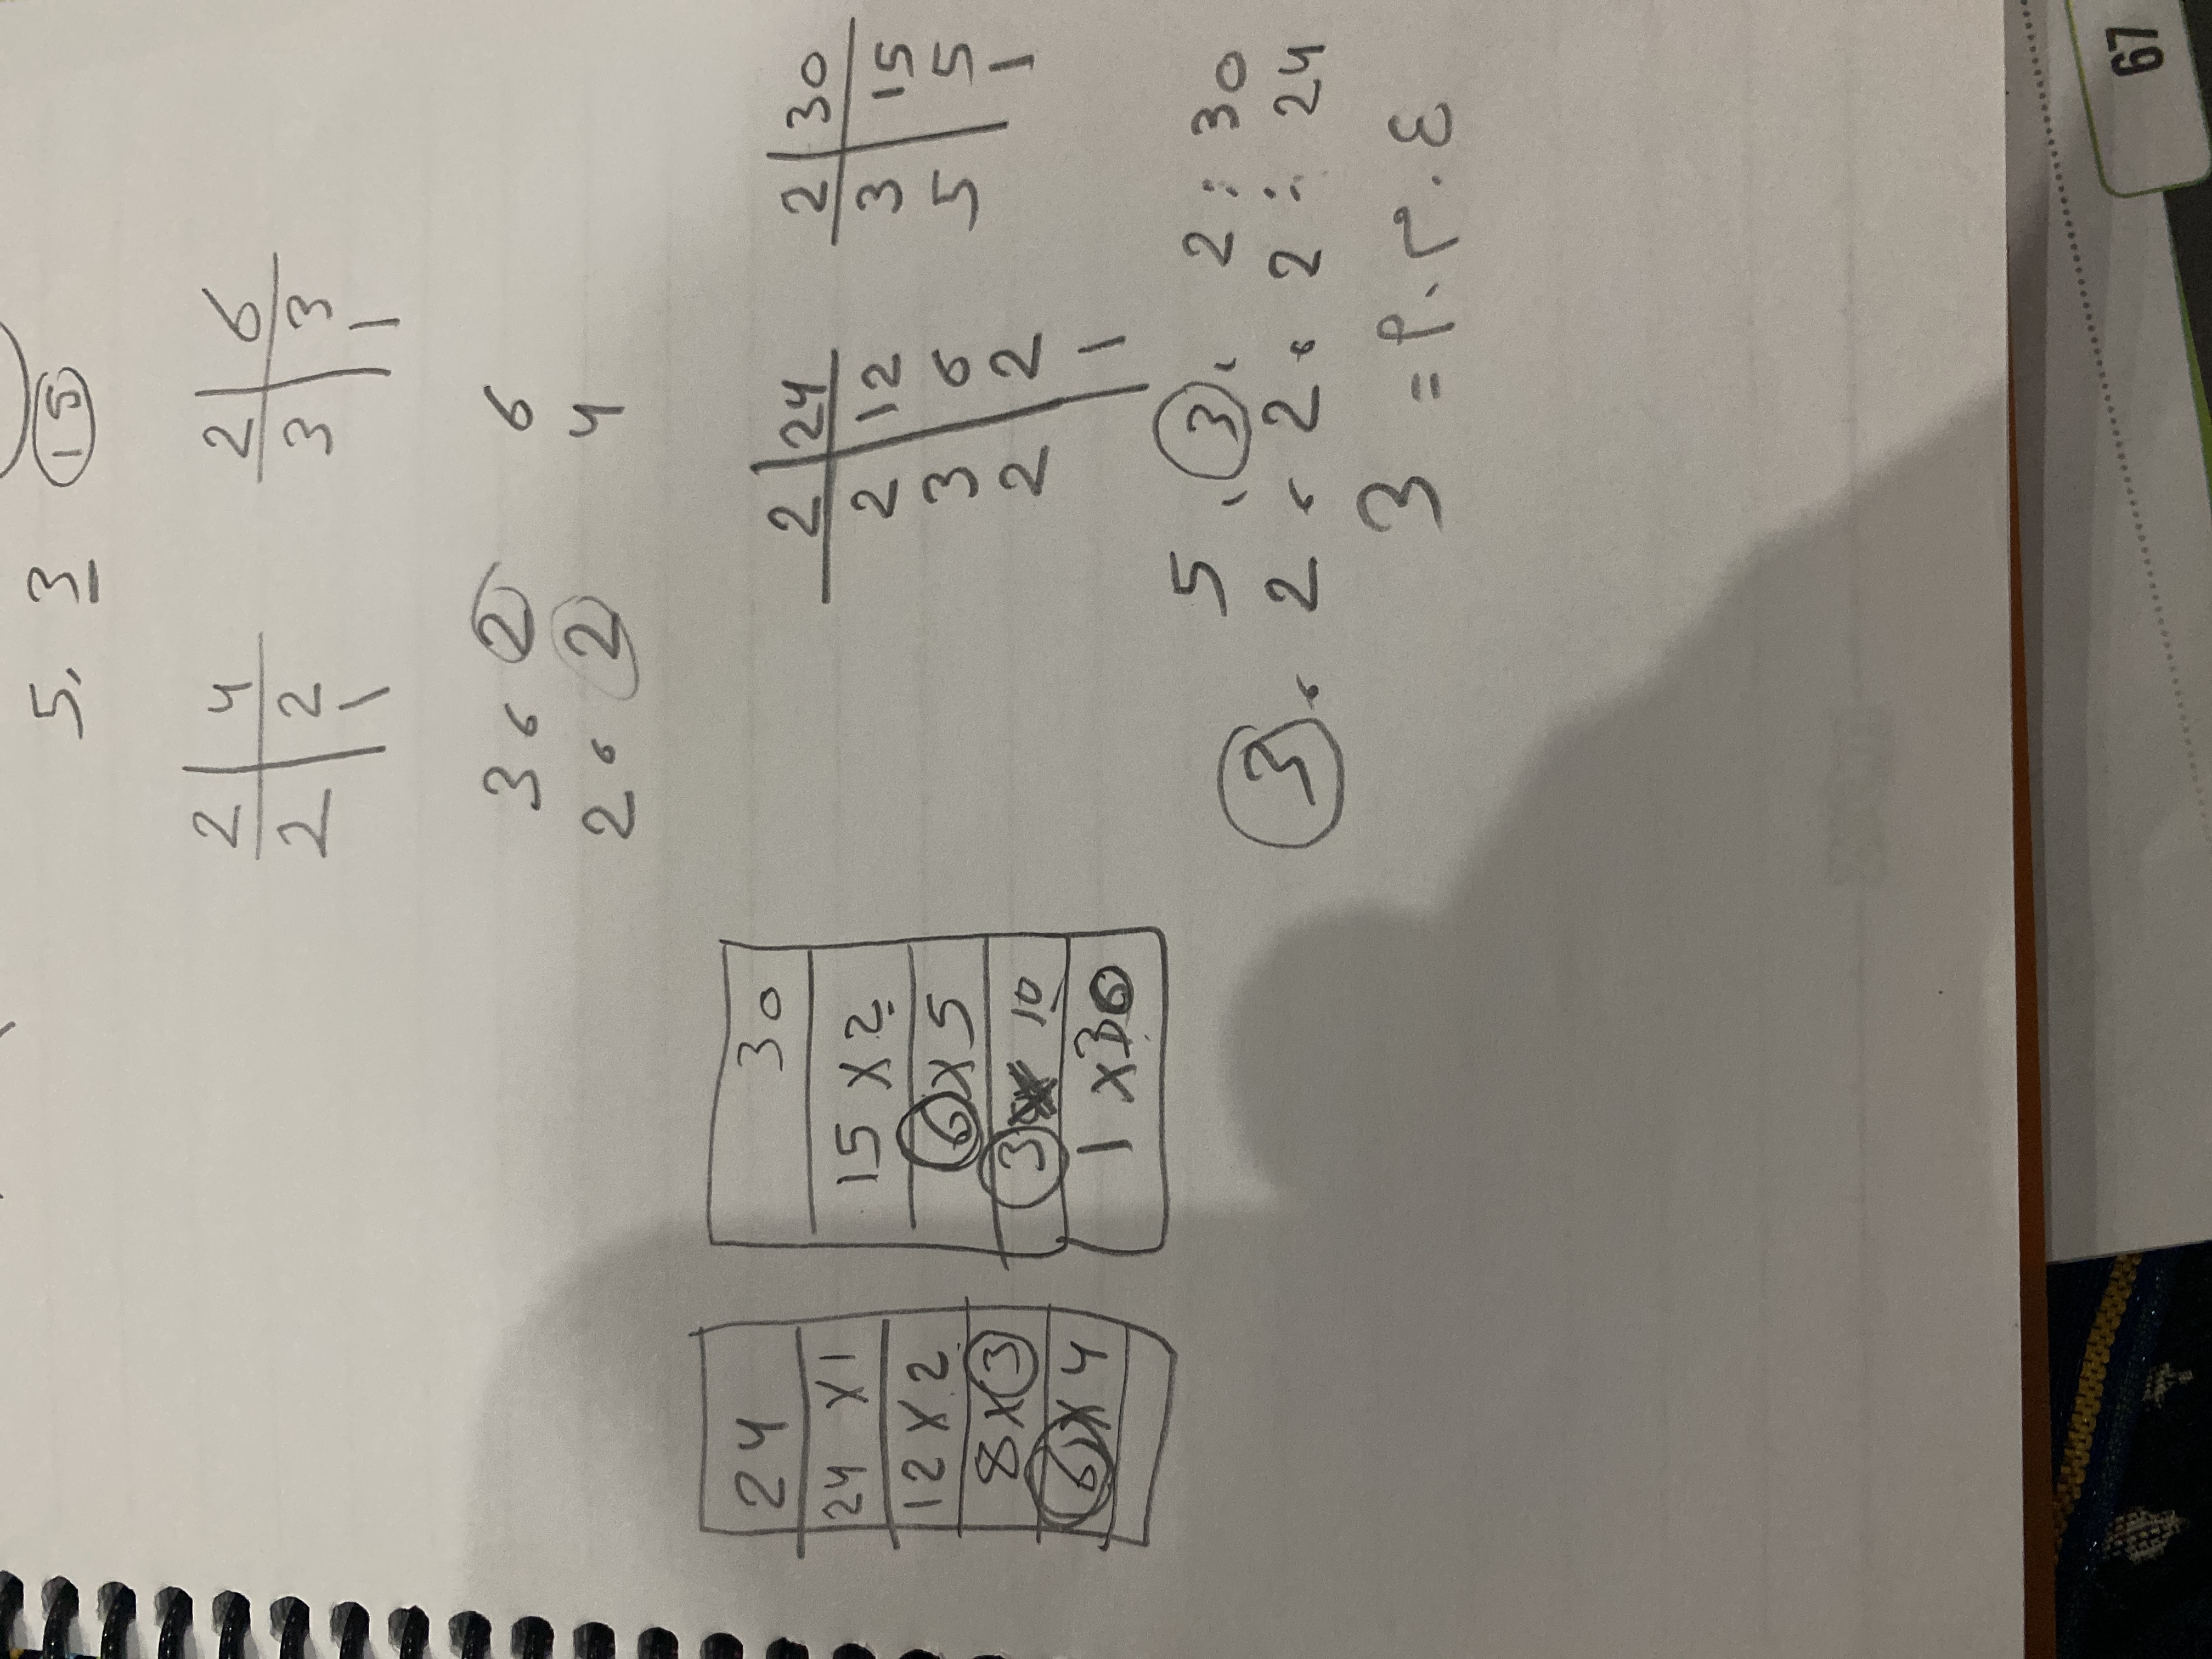 5, 3 15
2 4 2 6
2 2 3 3
1 1
3 ، 2 6
2 ، 2 4
24 30 2 24 2 30
24 x 1 15 x 2 2 12 3 15
12 x 2 6 x 5 3 6 5 5
8 x 3 3 x 10 2 2 1
6 x 4 1 x 30 1
5 ، 3 ، 2 : 30
3 ، 2 ، 2 ، 2 : 24
ع . م . م = 3
67